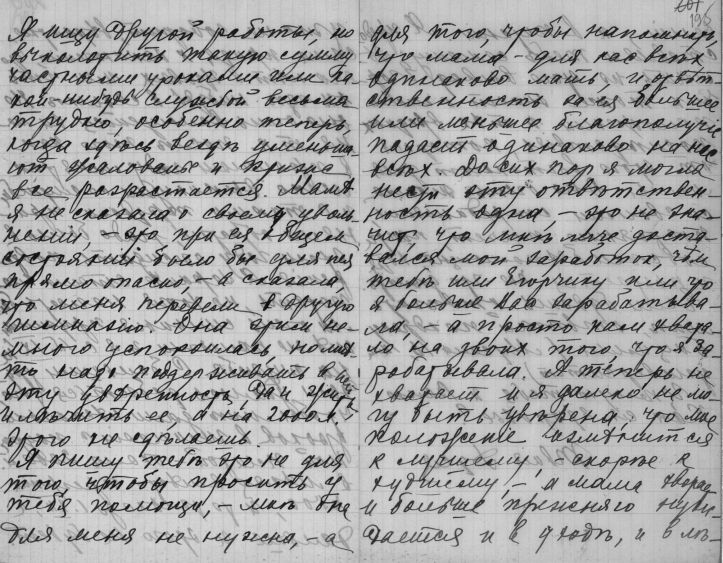 Я ищу другой работы, но
выколотить такую сумму
частными уроками или ка
кой-нибудь службой весьма
трудно, особенно теперь,
когда здѣсь вездѣ уменьша-
ют жалованье и кризис
все разрастается. Мамѣ
я не сказала о своем уволь
нении, – это при ея общем
состоянии было бы для нея
прямо опасно, – а сказала,
что меня перевели в другую
гимназию. Она этим не-
много успокоилась, но
то надо поддерживать в ней
эту увѣренность, да и жить
и лѣчить ее, а на 2000 л.
этого не сдѣлаешь.
Я пишу тебѣ это не для
того, чтобы просить у
тебя помощи, – мнѣ она
для меня не нужна, – а
196
для того, чтобы напомнить,
что мама – для нас всѣх
одинаково мать, и отвѣт-
ственность за ея большее
или меньшее благополучіе
падает одинаково на нас
всѣх. До сих пор я могла
нести эту отвѣтствен-
ность одна, – это не зна-
чит, что мнѣ легче доста-
вался мой заработок, чѣм
тебѣ или Егорчику или что
я больше Вас зарабатыва
ла, – а просто нам хвата-
ло на двоих того, что я за
рабатывала. А теперь не
хватает и я далеко не мо-
гу быть увѣрена, что мое
положение измѣнится
к лучшему, – скорѣе к
худшему, – а мама
и больше прежняго нуж-
дается и в уходѣ, и в лѣ-